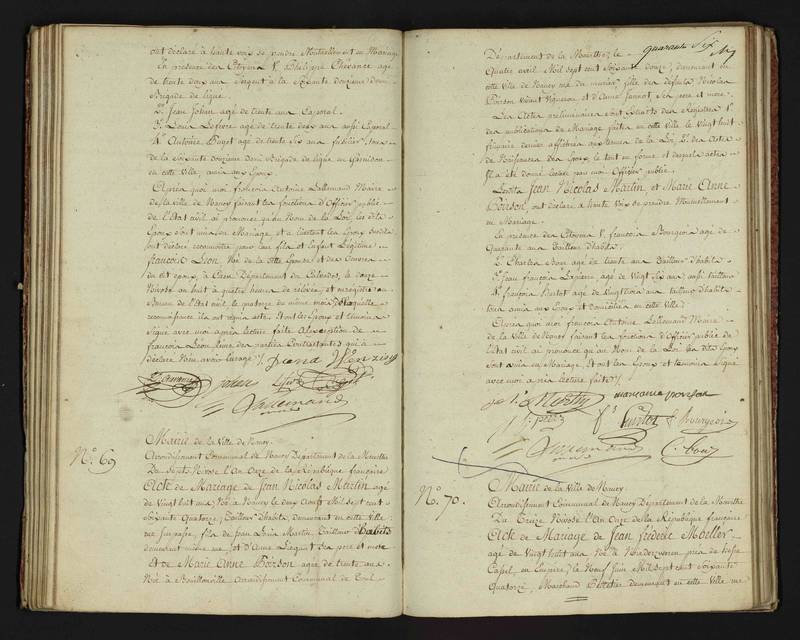 ont déclaré à haute voix se prendre Mutuellement en Mariage
En présence des Citoyens 1° Philippe Chevance agé
de trente deux ans Sergent à la Soixante douzieme demi
Brigade de ligne
2° Jean Johan agé de trente ans Caporal.
3° Louis Lefevre agé de trente deux ans aussi Caporal
4° Antoine Buget agé de trente Six ans fusilier, tous
de la soixante douzieme demi Brigade de ligne en Garnison
en cette Ville, amis aux Epoux.
Après quoi moi françois Antoine Lallemand Maire
de la Ville de Nancy faisant les fonctions d'Officier public
de l'Etat civil ai prononcé qu'au Nom de la Loi, les dits
Epoux sont unis en Mariage, et à l'instant les Epoux susdits
ont déclaré reconnoitre pour leur fils et Enfant Légitime
françois Léon Né de la dite Epouse et des Oeuvres
du dit Epoux, à Caen Département du Calvados, le douze
Nivose an huit à quatre heures de relevée, et enregistré au
Bureau de l'Etat civil le quatorze du même mois, de laquelle
reconnoissance ils ont requis acte. Et ont les Epoux et témoins
Signé avec moi après lecture faite à l'exception de
françois Léon l'une des parties Contractantes qui a
déclaré N'en avoir l'usage.
Lallemand
N°. 69
Mairie de la Ville de Nancy.
Arrondissement Communal de Nancy Département de la Meurthe
Du Sept Nivose l'An Onze de la République française
Acte de Mariage de Jean Nicolas Martin agé
de Vingt huit ans Né à Nancy le deux Août Mil sept cent
soixante Quatorze, Tailleur d'habits, demeurant en cette Ville
rue St Jean, fils de Jean Louis Martin, Tailleur d'habits
demeurant même rue, et d'Anne Liegent ses pere et mere
Et de Marie Anne Poirson agée de trente ans
Née à Bouillonville Arrondissement Communal de Toul
quarante Six
Département de la Meurthe, le
Quatre avril Mil sept cent Soixante douze, demeurant en
cette Ville de Nancy rue du manege fille des défunts Nicolas
Poirson vivant Vigneron et d'Anne Jannot, ses pere et mere.
Les Actes preliminaires sont Extraits des Registres 1°
des publications de Mariage faites en cette Ville le Vingt huit
frimaire dernier affichées aux termes de la Loi, 2° des Actes
de Naissances des Epoux le tout en forme et desquels actes
Il a été donné lecture par moi Officier public
Lesdits Jean Nicolas Martin, et Marie Anne
Poirson, ont déclaré à haute Voix se prendre Mutuellement
en Mariage.
En présence des Citoyens 1° françois Bourgeois agé de
Quarante ans Tailleur d'habits.
2° Charles Noir agé de trente ans Tailleur d'habits
3° Jean françois Lapierre agé de Vingt Six ans, aussi tailleur
4° françois Huitot agé de Vingt trois ans tailleur d'habits
tous amis aux Epoux et domiciliés en cette Ville;
Après quoi moi françois Antoine Lallemand Maire
de la Ville de Nancy faisant les fonctions d'Officier public de
l'Etat civil ai prononcé qu'au Nom de la Loi les dits Epoux
sont unis en Mariage. Et ont les Epoux et témoins signé
avec moi après lecture faite.
marianne poirson
f. Bourgeois
N°. 70.
Mairie de la Ville de Nancy.
Arrondissement Communal de Nancy Département de la Meurthe
Du Treize Nivose l'An Onze de la République française
Acte de Mariage de Jean fréderic Moeller
agé de Vingt huit ans Né à près de hesse
Cassel, en Empire, le Neuf Juin Mil sept cent Soixante
Quatorze, Marchand demeurant en cette Ville rue